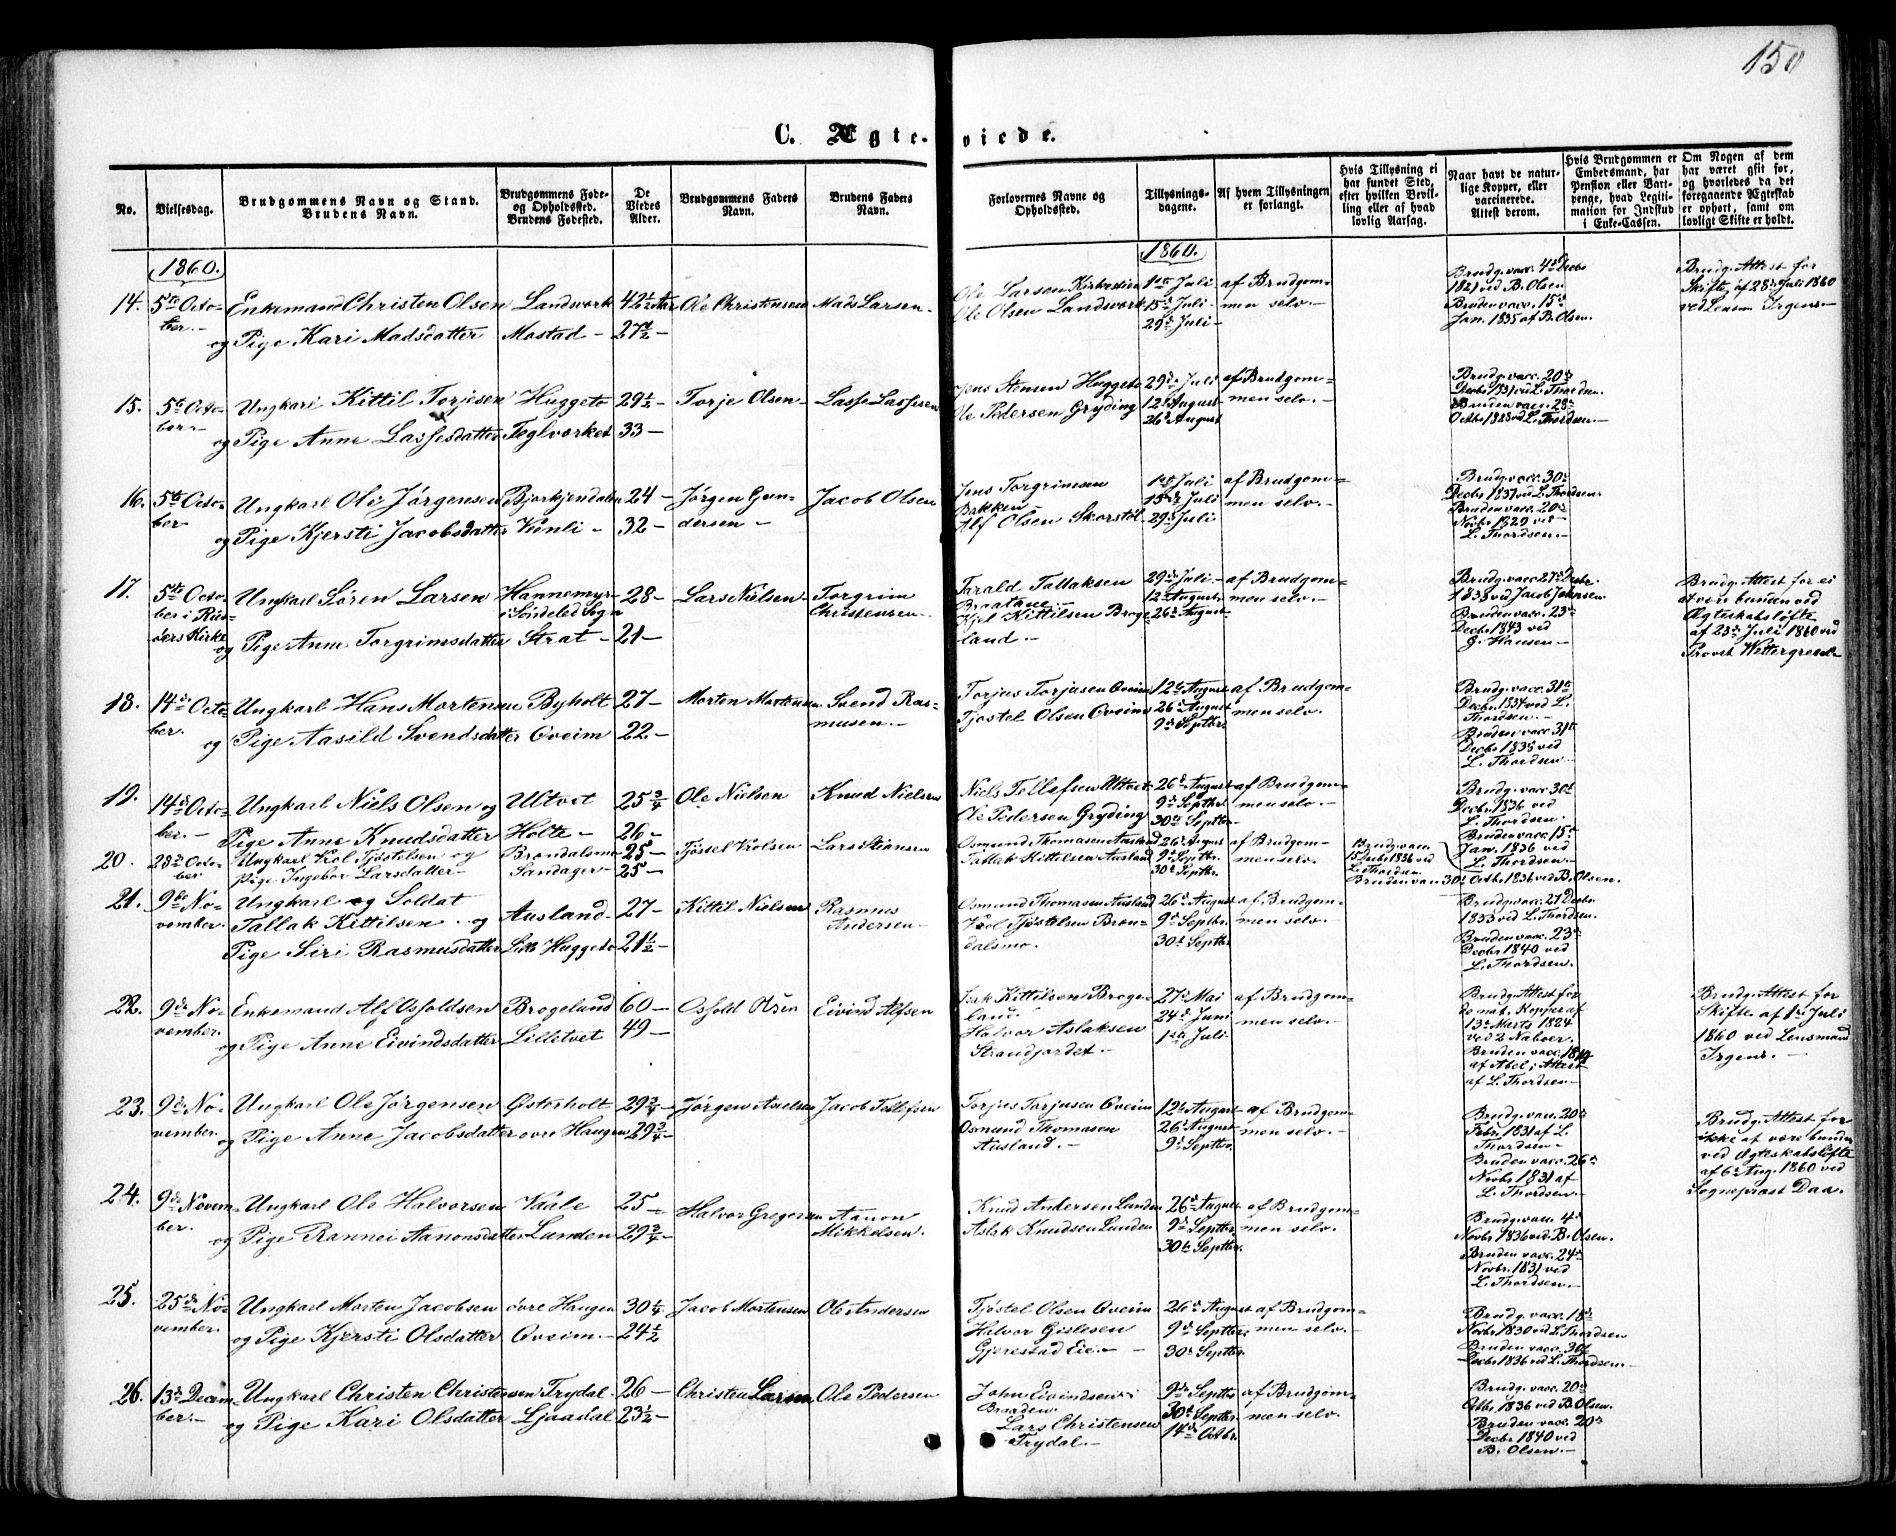 150
C. Ægte-viede.
No.
Vielsesdag.
Brudgommens Navn og Stand.
Brudens Navn.
Brudgommens Føde-
og Opholdssted.
Brudens Fødested.
De
Viedes
Alder.
Brudgommens Faders
Navn.
Brudens Faders
Navn.
Forlovernes Navne og
Opholdssted.
Tillysnings-
dagene.
Af hvem Tillysningen
er forlangt.
Hvis Tillysning ei
har fundet Sted,
efter hvilken Bevil-
ling eller af hvad
lovlig Aarsag.
Naar havt de natur-
lige Kopper, eller
vaccinerede.
Attest derom.
Hvis Brudgommen er
Embedsmand, har
Pension eller Vart-
penge, hvad Legiti-
mation for Indskud
i Enke-Cassen.
Om Nogen af dem
har været gift før,
og hvorledes da det
foregaaende Ægteskab
er ophørt, samt om
lovligt Skifte er holdt.
1860.
1860.
14. 5te Octo-
ber.-
Enkemand Christen Olsen
og Pige Kari Madsdatter
Landsverk
Mostad -
42½ Aar
27½ -
Ole Christensen
Mads Larsen -
Ole Larsen Kirkeeien
Ole Olsen Landsverk
1ste Juli
15de Juli -
29de Juli -
af Brudgom-
men selv. -
Brudg. vacc. 4de Decbr
1821 ved B. Olsen
Bruden vacc. 15de
Jan. 1835 af B. Olsen.
Brudg. Attest for
Skifte, af 28de Juli 1860
ved Lensm. Irgens -
15. 5te Octo-
ber -
Ungkarl Kittil Torjesen
og Pige Anne Lassesdatter
Huggeto
Teglverket
29½ -
33 -
Torje Olsen -
Lasse Lassesen
Jens Stensen Huggeto
Ole Pedersen Gryding
29de Juli
12te August
26de August
af Brudgom=
men selv. -
Brudg. vacc. 20de
Decbr 1831 ved L. Thordsen.
Bruden vacc. 28de
Octbr 1828 ved L. Thordsen. -
16. 5te Octo-
ber -
Ungkarl Ole Jørgensen
og Pige Kjersti Jacobsdatter
Bjorkjendalen
Venli -
24 -
32 -
Jørgen Gun-
dersen -
Jacob Olsen
Jens Torgrimsen
Bakken -
Alf Olsen Skorstøl
1ste Juli
15de Juli
29de Juli
af Brudgom-
men selv. -
Brudg. vacc. 30te
Decbr 1837 ved L. Thordsen.
Bruden vacc. 20de
Novbr 1829 ved
L. Thordsen. -
17. 5te Octo-
ber i Rii-
sørs Kirke
Ungkarl Søren Larsen
og Pige Anne Torgrimsdatter
Hannemyr
i Søndeled Sogn
Strat -
28 -
21 -
Lars Nielsen -
Torgrim
Christensen -
Tarald Tallaksen
Braaland -
Kjel Kittilsen Broge-
land. -
29de Juli -
12te August -
26de August
af Brudgom=
men selv. -
Brudg. vacc 27de Decbr.
1838 ved Jacob Johnsen
Bruden vacc. 23de
Decbr 1843 ved
G. Hansen -
Brudg. Attest for ei
at være bunden ved
Ægteskabsløfte
af 23de Juli 1860 ved
Provst Wettergreen
18. 14de Octo-
ber.
Ungkarl Hans Mortensen
og Pige Aasild Svendsdatter
Byholt
Qveim
27 -
22 -
Morten Mortensen
Svend Ras-
musen. -
Torjus Torjusen Qveim
Tjostel Olsen Qveim
12te August
26de August
9de Septbr.
af Brudgom=
men selv.
Brudg. vacc. 31te
Decbr 1834 ved L.
Thordsen. -
Bruden vacc 31te
Decbr 1838 ved
L. Thordsen.
19. 14de Octo-
ber. -
Ungkarl Niels Olsen og
Pige Anne Knudsdatter
Ultvet
Holte -
25¾
26 -
Ole Nielsen
Knud Nielsen
Niels Tollefsen Ultvet
Ole Pedersen Gryding
26de August
9de Septbr.
30te Septbr.
af Brudgom=
men selv. -
Brudg. vacc. 30te
Decbr. 1836 ved
L. Thordsen.
Bruden vacc. 15de
Jan. 1836 ved
L. Thordsen. -
20. 28de Octo-
ber
Ungkarl Vrol Tjøstelsen og
Pige Ingebor Larsdatter -
Brondalsmo
Sandager -
25 -
25 -
Tjøstel Vrolsen
Lars Stiansen
Osmund Thomasen Ausland
Tallak Kittilsen Ausland
26de August
9de Septbr.
30te Septbr.
af Brudgom-
men selv.
Brudg. vacc.
15 Decbr 1836 ved
L. Thordsen.
Bruden vacc. 30te Octbr. 1836 ved B. Olsen.
21. 9de No-
vember.
Ungkarl og Soldat
Tallak Kittilsen og
Pige Siri Rasmusdatter
Ausland -
Lille Huggeto
27 -
21½ -
Kittil Nielsen
Rasmus
Andersen -
Osmund Thomasen Ausland
Vrol Tjøstelsen Bron-
dalsmo.
26de August
9de Septbr.
30te Septbr.
af Brudgom-
men selv. -
Brudg. vacc. 27 Decbr.
1833 ved L. Thordsen.
Bruden vacc. 23de
Decbr 1840 ved
L. Thordsen.
22. 9de No-
vember.
Enkemand Alf Osfoldsen
og Pige Anne Eivindsdatter
Brogeland
Lilletvet
60 -
49 -
Osfold Olsen
Eivind Alfsen
Isak Kittilsen Broge-
land.
Halvor Aslaksen
Strandjordet -
27de Mai
24de Juni
1ste Juli
af Brudgom-
men selv. -
Brudg. Attest for
de nat. Kopper af
13de Marts 1824
ved 2 Naboer.
Bruden vacc. 1819
af Abel; Attest
af L. Thordsen -
Brudg. Attest for
Skifte af 1ste Juli
1860 ved Lensmand
Irgens. -
23. 9de No-
vember.
Ungkarl Ole Jørgensen
og Pige Anne Jacobsdatter
Østerholt
øvre Haugen
29¾ -
29¾ -
Jørgen Axelsen
Jacob Tollefsen
Torjus Torjusen Qveim
Osmund Thomasen
Ausland. -
12te August
26de August
9de Septbr.
af Brudgom-
men selv. -
Brudg. vacc. 20de
Febr. 1831 af L.
Thordsen -
Bruden vacc. 26de
Novbr 1831 af
L. Thordsen. -
Brudg. Attest for
ikke at være bunden
ved Ægteskabsløfte
af 6te Aug. 1860 ved
Sogneprest Daa.
24. 9de Novem-
ber.
Ungkarl Ole Halvorsen
og Pige Rannei Aanonsdatter
Vaale
Lunden
25 -
29¾ -
Halvor Gregersen
Aanon
Mikkelsen.
Knud Andersen Lunden
Aslak Knudsen Lunden
26de August
9de Septbr.
30te Septbr.
af Brudgom=
men selv.
Brudg. vacc. 4de
Novbr. 1836 ved B. Olsen.
Bruden vacc. 24de
Novbr. 1831 ved
L. Thordsen. -
25. 25de No-
vember.
Ungkarl Morten Jacobsen
og Pige Kjersti Olsdatter
øvre Haugen
Qveim. -
30¼ -
24½
Jacob Mortensen
Ole Andersen
Tjøstel Olsen Qveim
Halvor Gislesen
Gjerestad Eie. -
26de August
9de Septbr.
30te Septbr.
af Brudgom=
men selv. -
Brudg. vacc. 18de
Novbr 1830 ved L. Thordsen
Bruden vacc. 30te
Decbr 1836 ved L. Thordsen. -
26. 13de Decem-
ber. -
Ungkarl Christen Christensen
og Pige Kari Olsdatter
Trydal -
Ljaadal
26 -
23½ -
Christen Larsen
Ole Pedersen
John Eivindsen i
Braaden.
Lars Christensen
Trydal. -
9de Septbr.
30te Septbr.
14de Octbr.
af Brudgom=
men selv. -
Brudg. vacc. 20de
Octbr. 1836 ved B. Olsen.
Bruden vacc. 20de
Decbr 1840 ved
B. Olsen. -